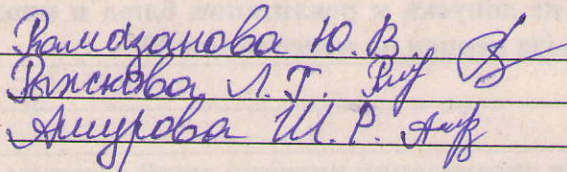 Рамазанова Ю. В.
Рыжкова Л. Г.
Ашурова Ш. Р.